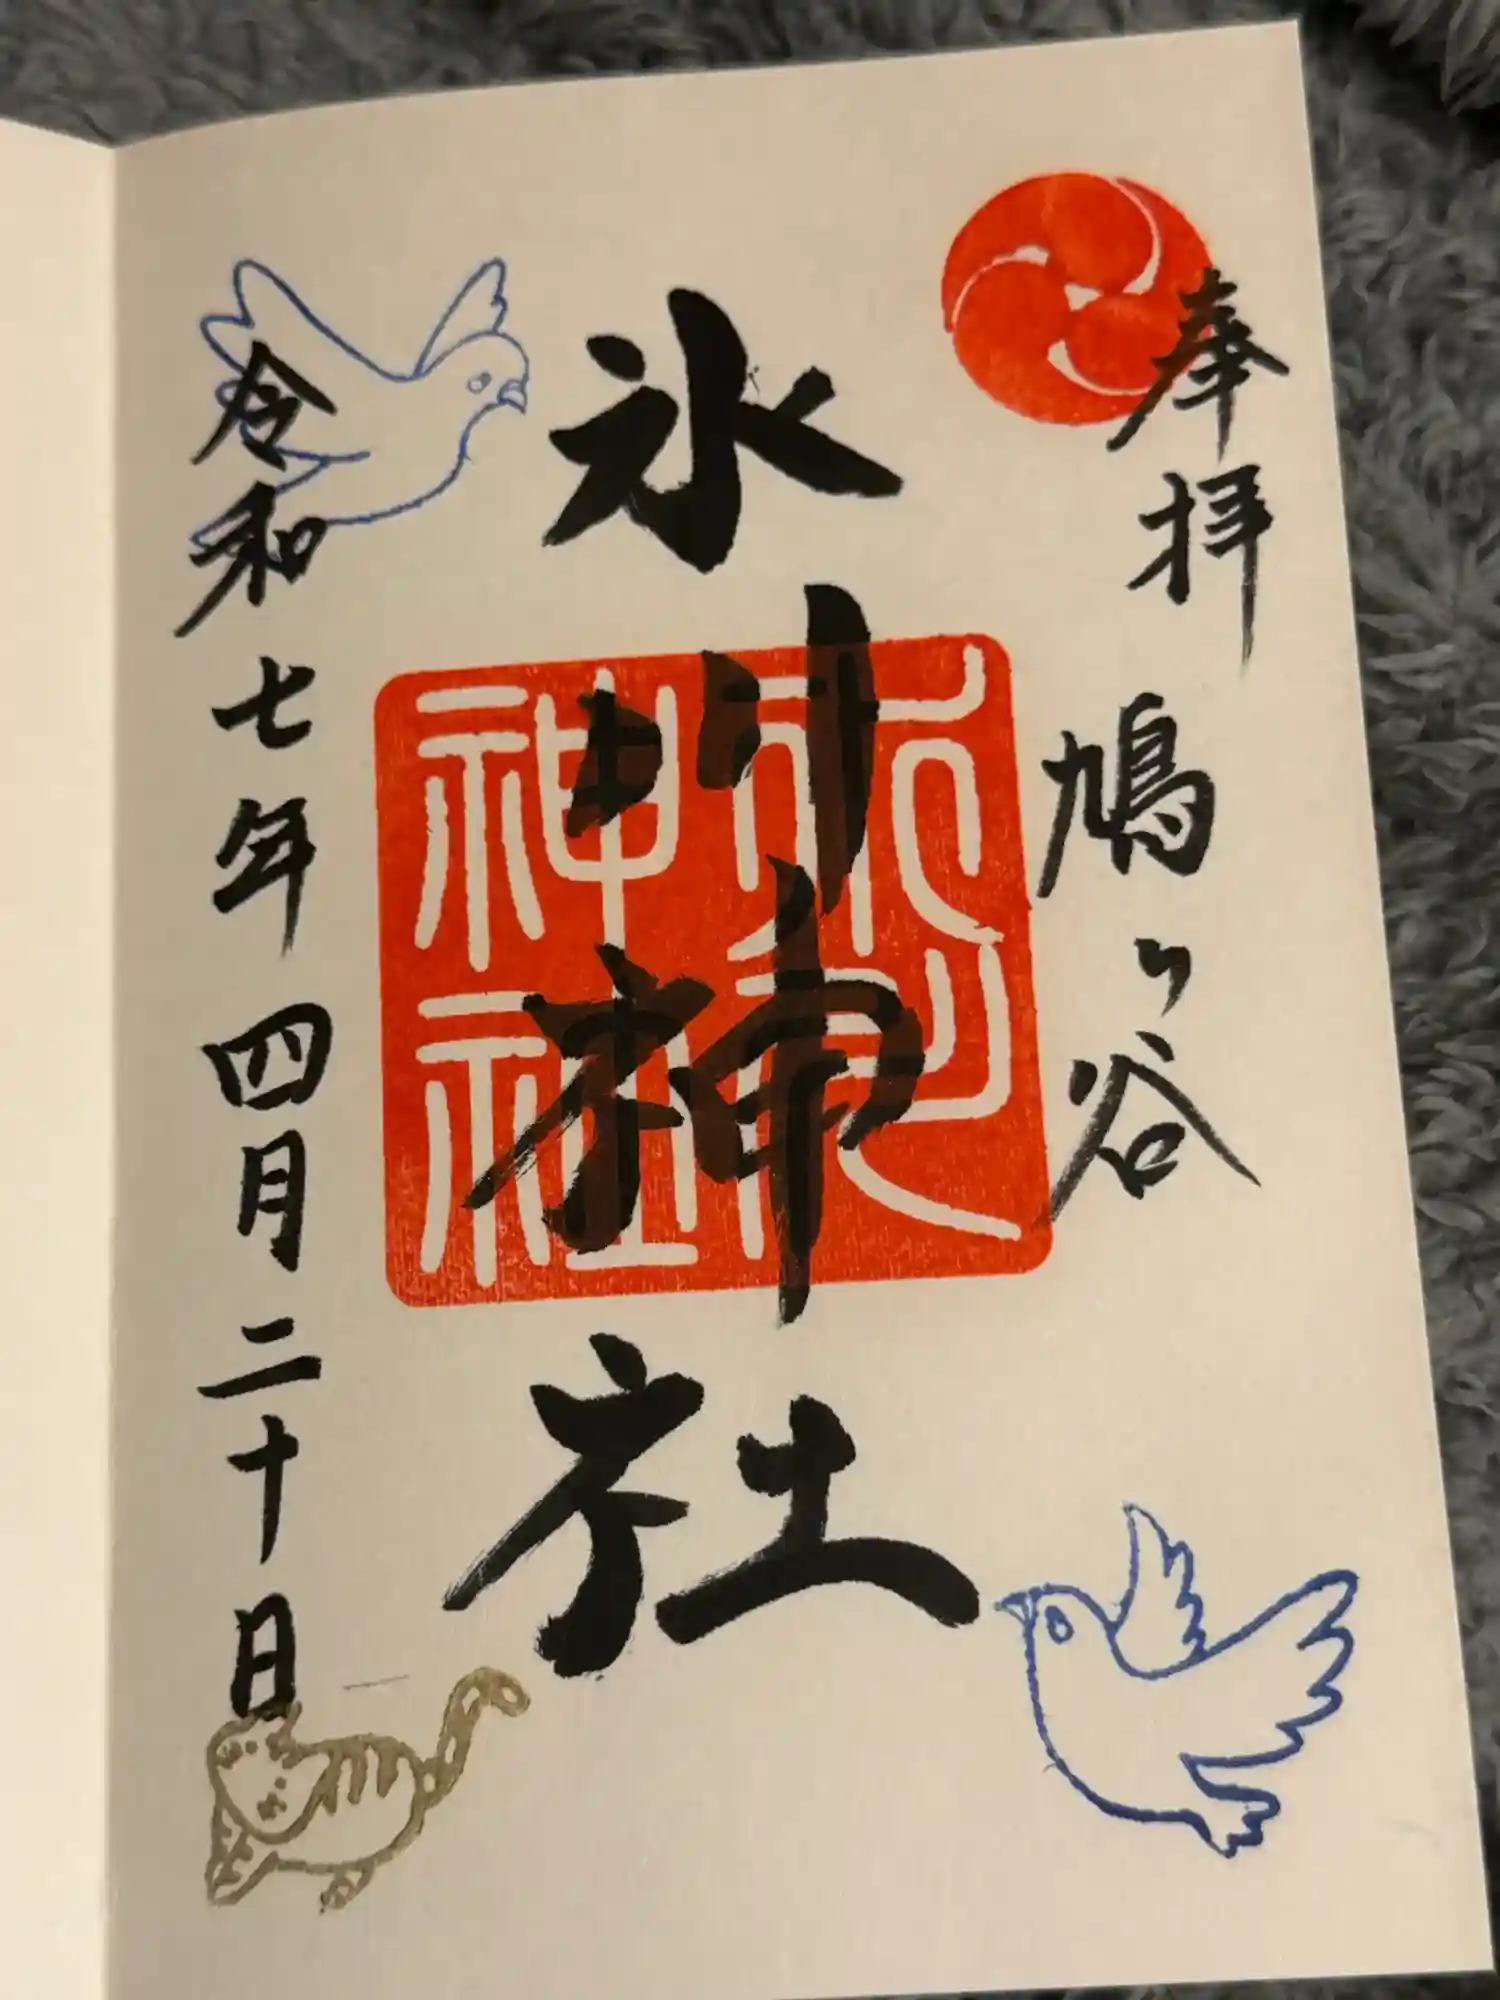 奉拝
鳩ヶ谷
氷川神社
氷川神社
令和七年四月二十日